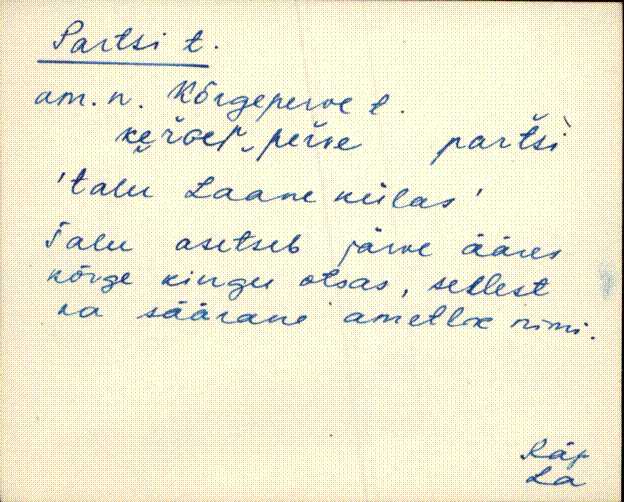 Partsi t.
am. n. Kõrgeperve t.
partši
'talu Laane külas'
Talu asetseb järve ääres
kõrge kingu otsas, sellest
ka säärane ametlik nimi.
Räp
La